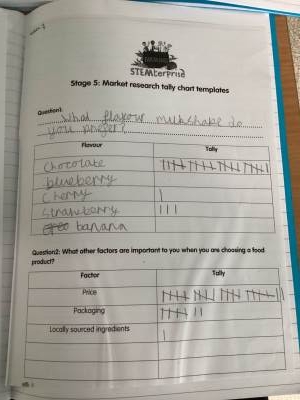 STEMterprise
Stage 5: Market research tally chart templates
Question1:
What flavour milkshake do
you prefer?
Flavour Tally
Chocolate
blueberry
Cherry
Strawberry
banana
Question2: What other factors are important to you when you are choosing a food
product?
Factor Tally
Price
Packaging
Locally sourced ingredients